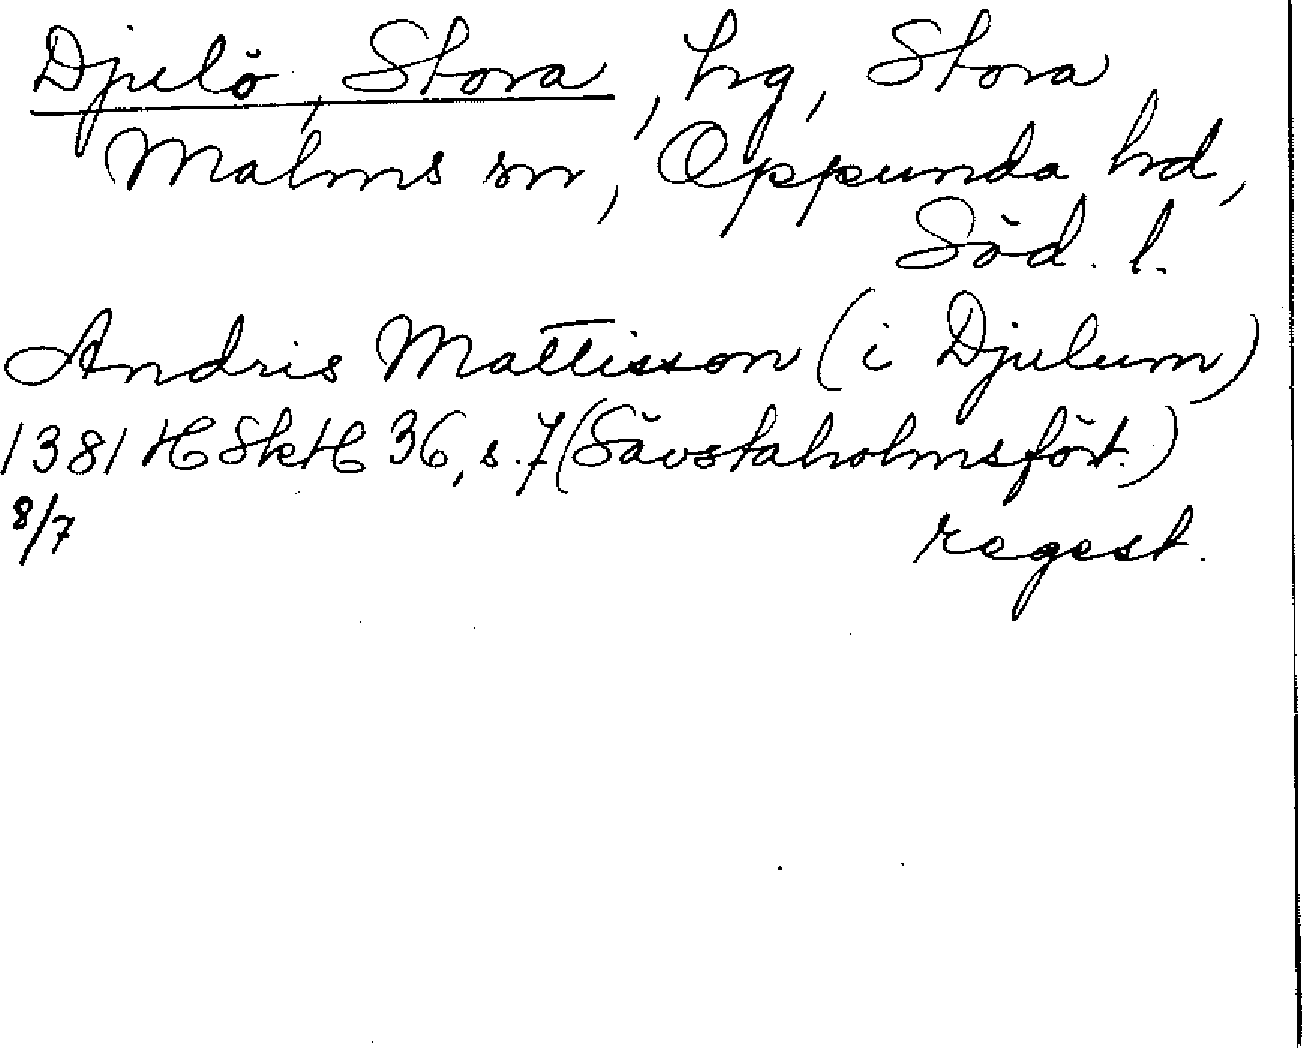 Djulö, Stora, hg, Stora
Malms sn, Oppunda hd,
Söd. l.
Andris Mattisson (i Djulum)
1381 HSkH 36, s. 7 (Sävstaholmsfört.)
8/7 regest.